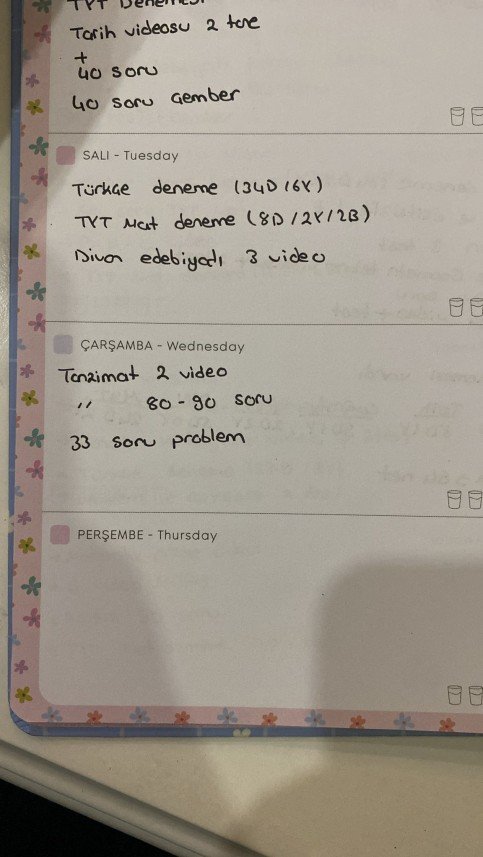 TYT Denemesi
Tarih videosu 2 tane
+
40 soru
40 soru Çember
SALI - Tuesday
Türkçe deneme (34D/6Y)
TYT Mat deneme (8D/2Y/2B)
Divan edebiyatı 3 video
ÇARŞAMBA - Wednesday
Tanzimat 2 video
" 80-90 soru
33 soru problem
PERŞEMBE - Thursday